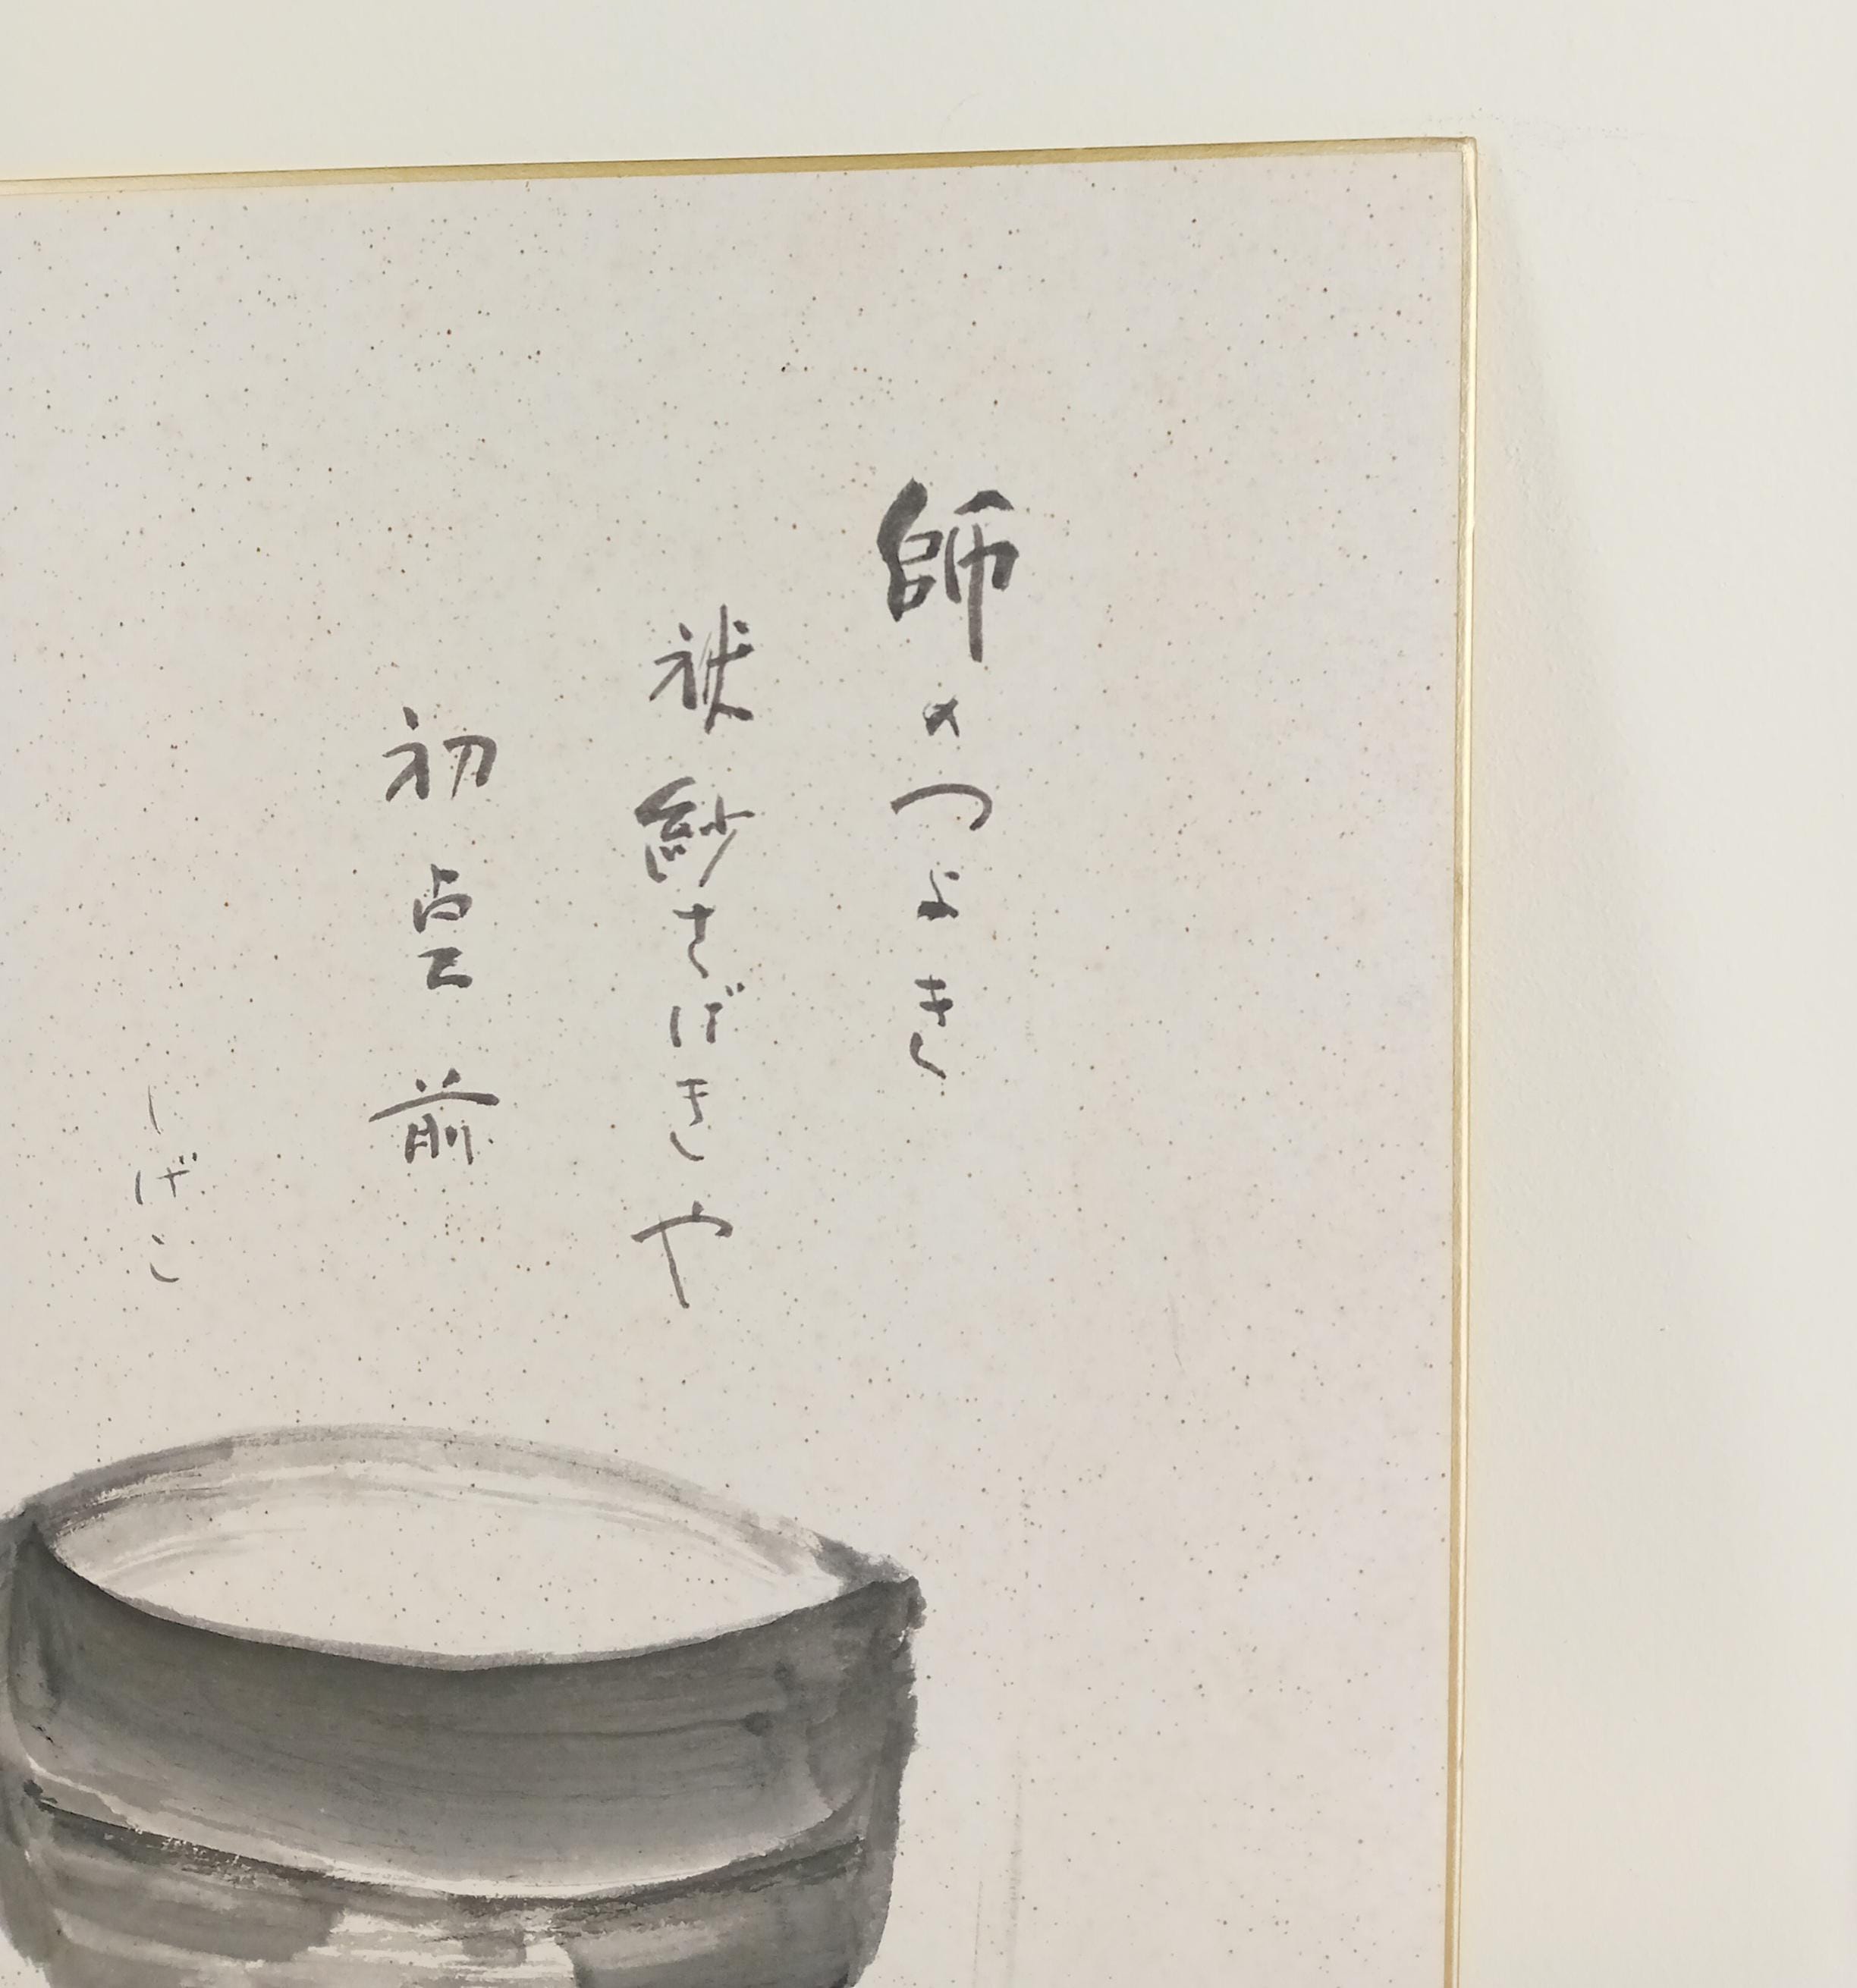 師のつよき
袱紗さばきや
初点前
しげこ